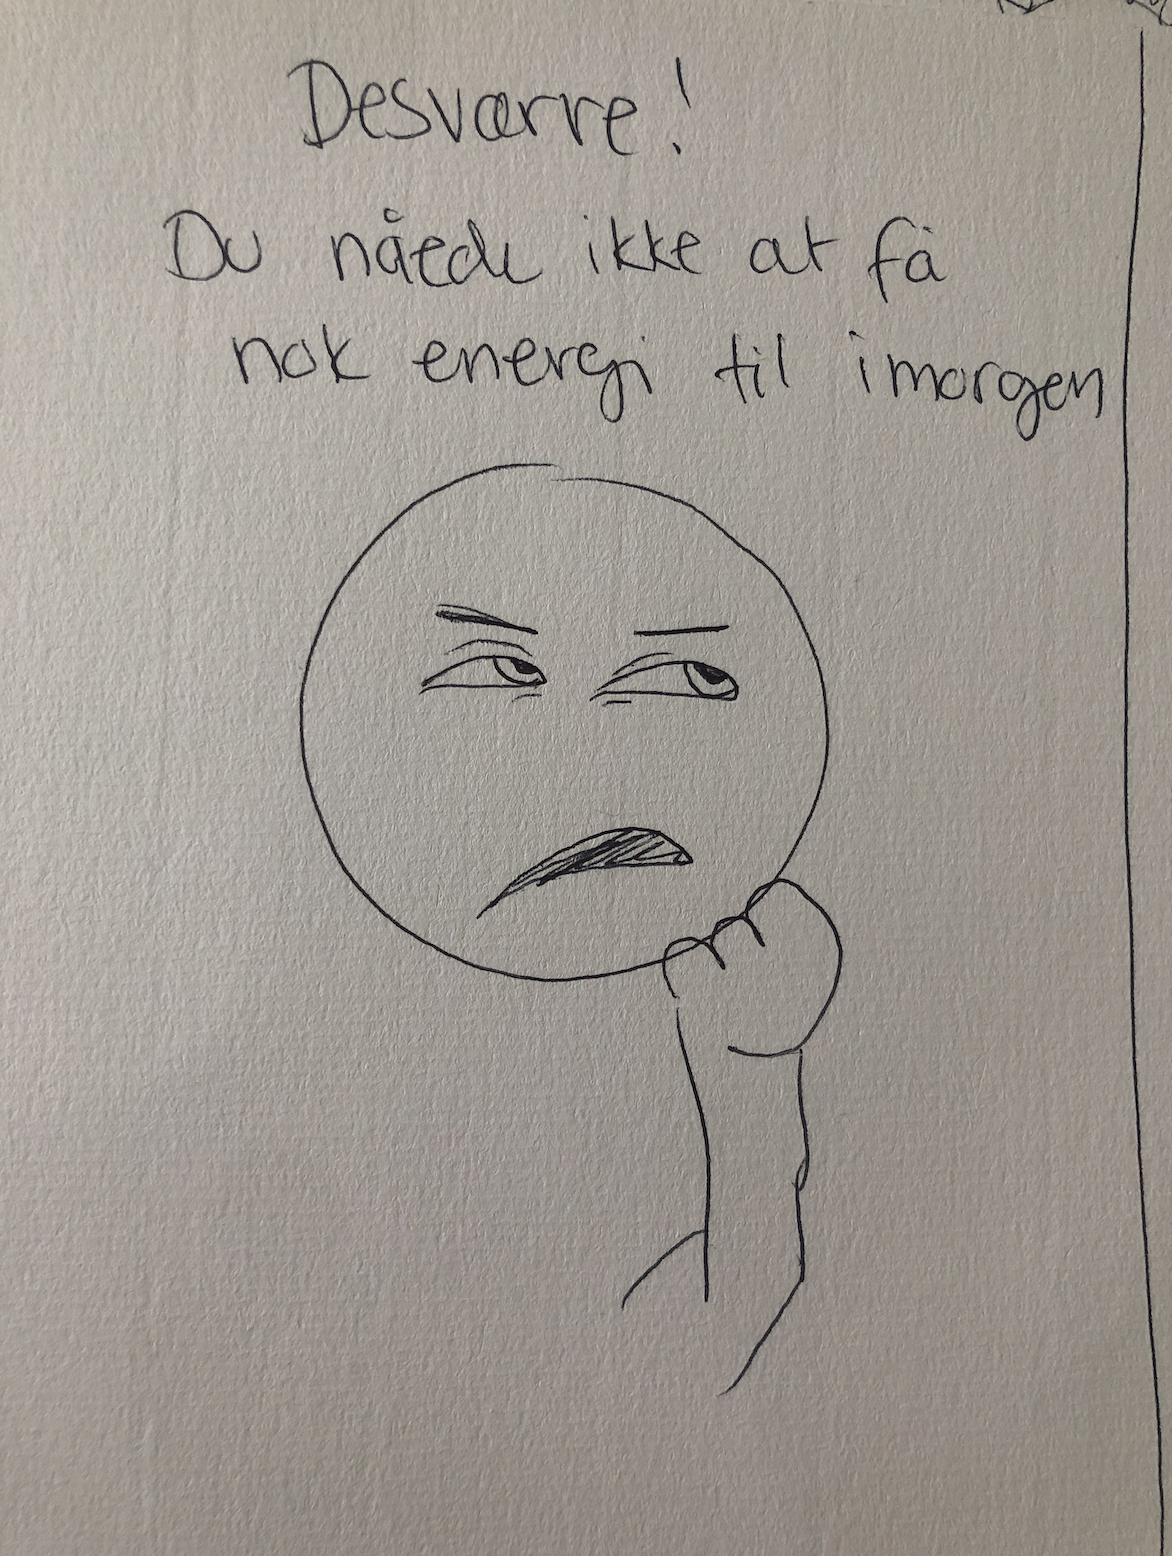 Desværre!
Du nåede ikke at få
nok energi til imorgen